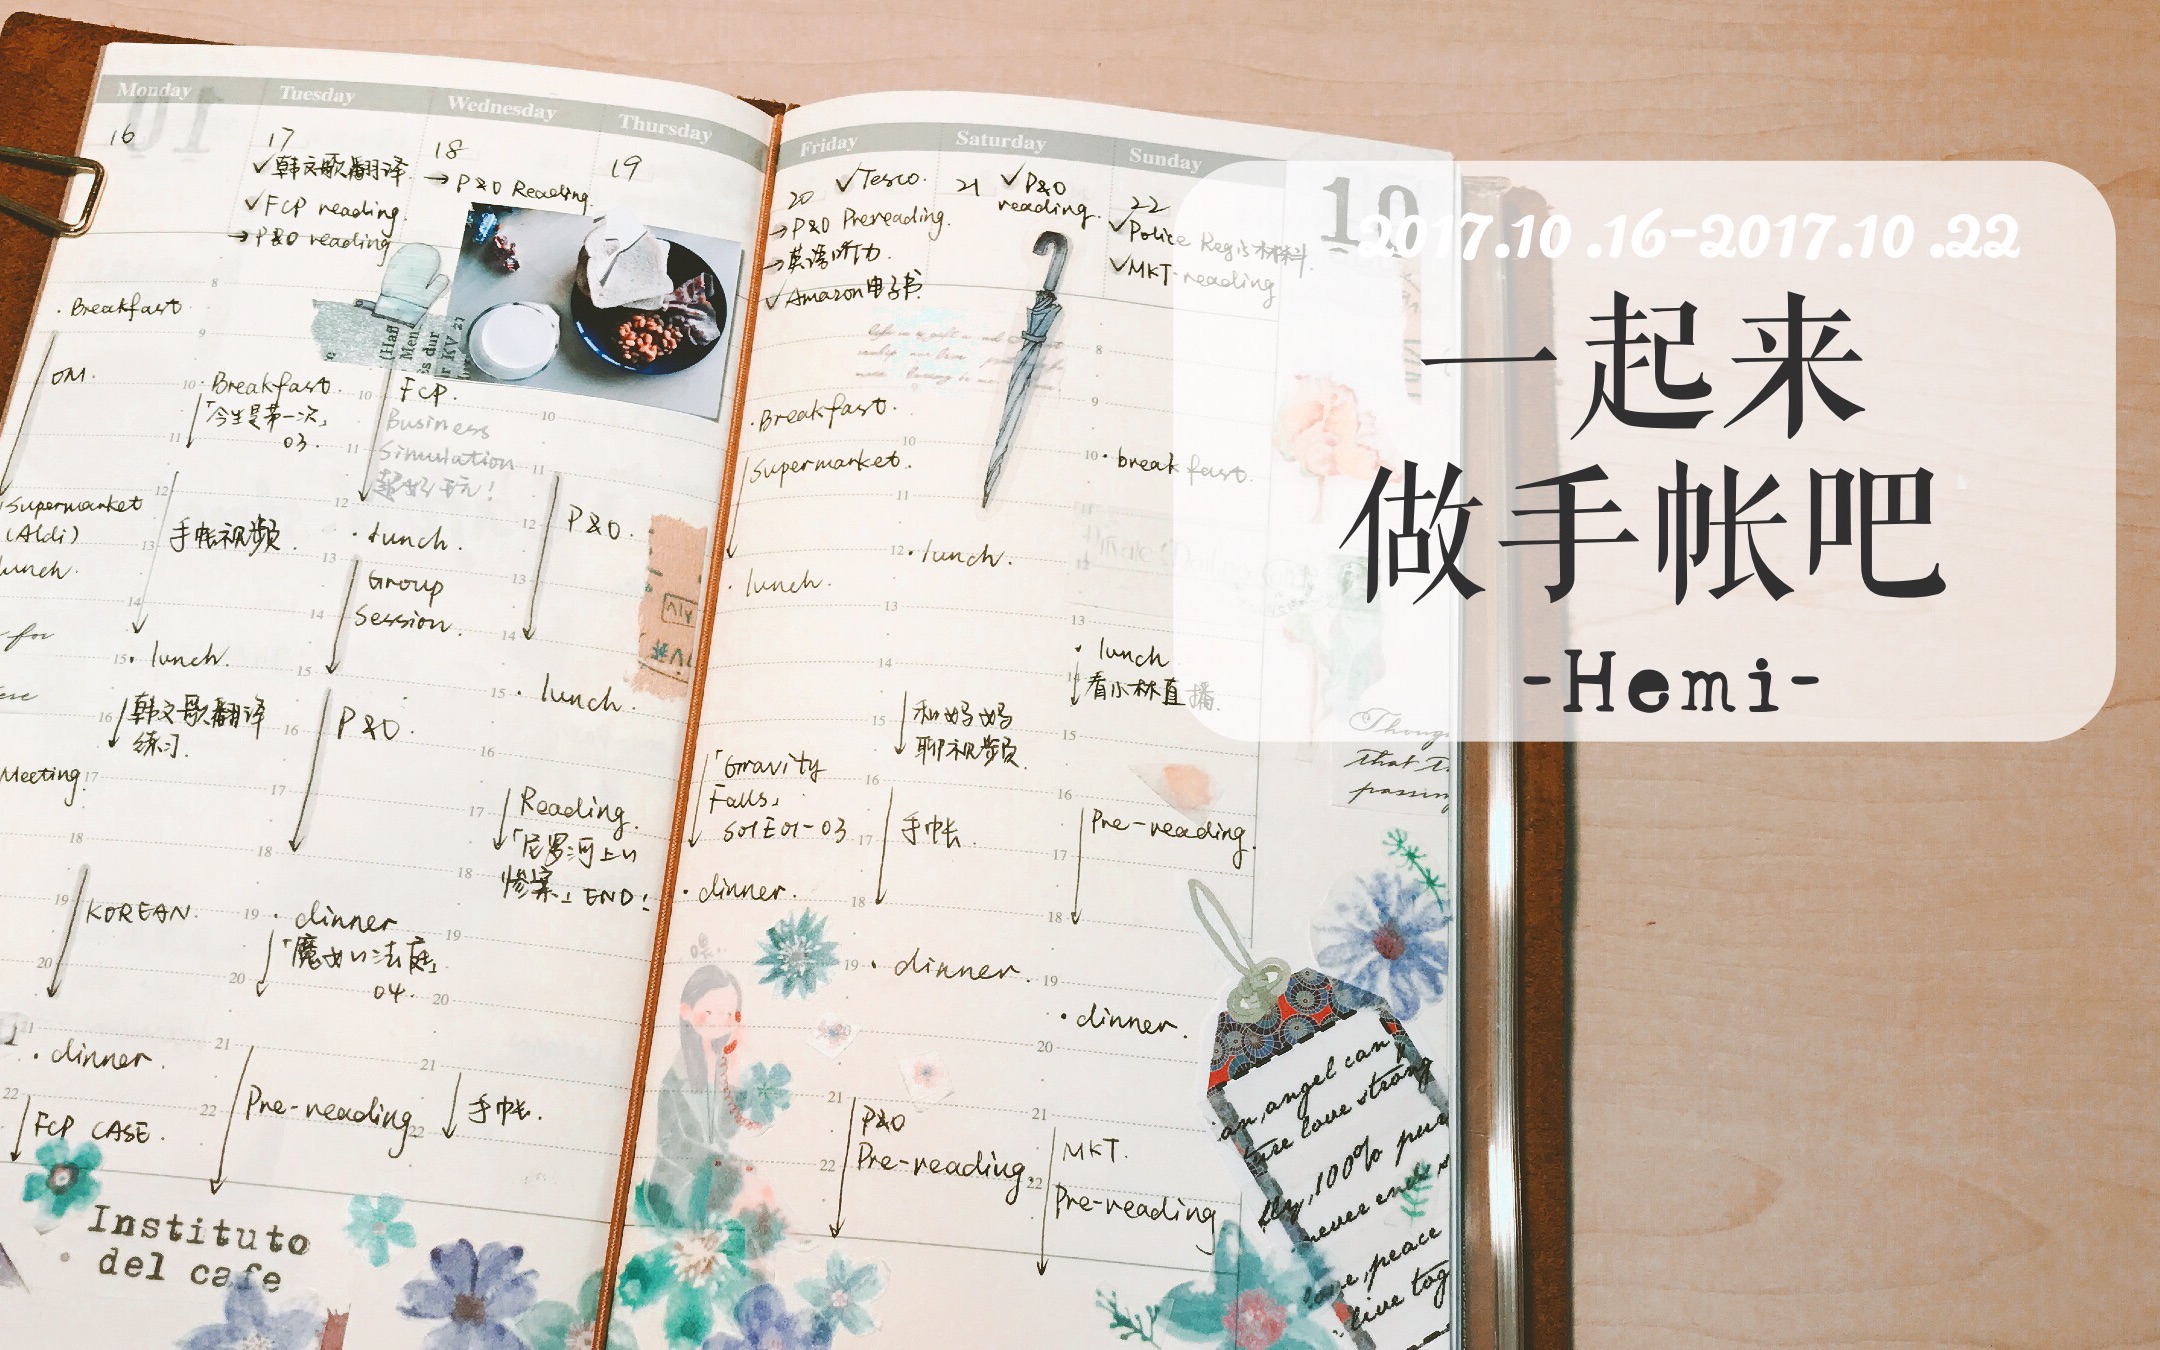 2017.10.16-2017.10.22
一起来
做手帐吧
-Hemi-
Monday
16
Breakfast
OM.
Supermarket
(Aldi)
lunch.
Meeting.
KOREAN.
dinner.
FCP CASE.
Instituto
del cafe
Tuesday
17
✓韩文歌翻译.
✓FCP reading.
→P&O reading
Breakfast.
「今生是第一次」
03.
手帐视频.
lunch.
韩文歌翻译
练习.
dinner
「魔女の法庭」
04.
Pre-reading
Wednesday
18
→P&O Reading.
FCP.
Business
Simulation
超好玩!
lunch.
Group
Session.
P&O.
手帐.
Thursday
19
P&O.
lunch.
Reading.
「尼罗河上の
惨案」END!
Friday
20
✓Tesco.
→P&O Prereading.
→英语听力.
✓Amazon电子书.
Breakfast.
Supermarket.
lunch.
「Gravity
Falls」
S01E01-03
dinner.
Saturday
21
✓P&O
reading.
lunch.
和妈妈
聊视频.
手帐.
dinner.
P&O
Pre-reading.
Sunday
22
✓Police Regis材料.
✓MKT reading
breakfast.
lunch
看小林直播.
Pre-reading.
dinner.
MKT.
Pre-reading
10
that t
passin
an angel can
love strong
100% pu
never end
peace
live tog